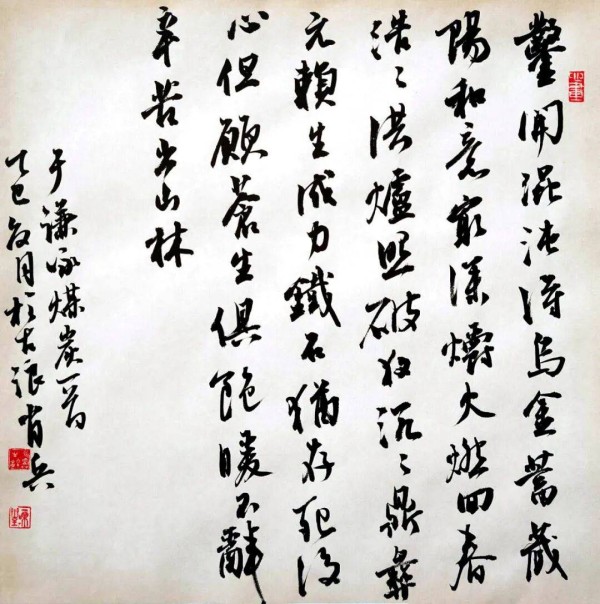 鑿開混沌得烏金蓄藏
陽和意最深爝火燃回春
浩〻洪爐照破夜沉〻鼎彝
元賴生成力鐵石猶存死後
心但願蒼生俱飽暖不辭
辛苦出山林
于謙詠煤炭一首
巳月於古浪兵